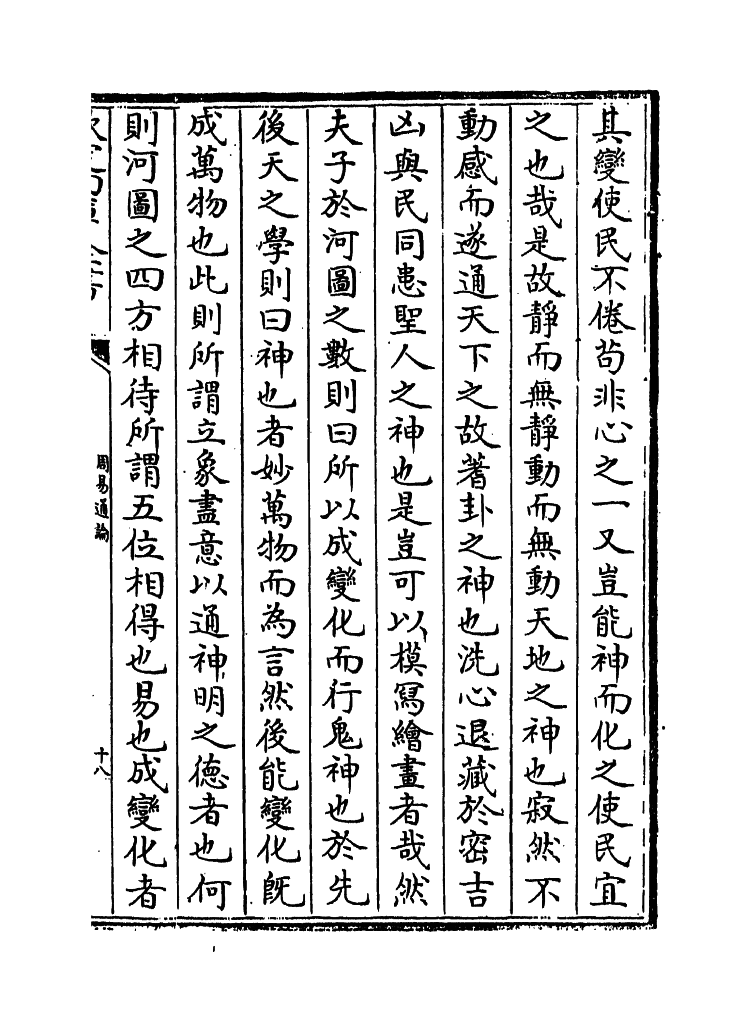 其變使民不倦苟非心之一又豈能神而化之使民宜
之也哉是故靜而無靜動而無動天地之神也寂然不
動感而遂通天下之故蓍卦之神也洗心退藏於密吉
凶與民同患聖人之神也是豈可以模冩繪畫者哉然
夫子於河圖之數則曰所以成變化而行鬼神也於先
後天之學則曰神也者妙萬物而為言然後能變化旣
成萬物也此則所謂立象盡意以通神明之德者也何
則河圖之四方相待所謂五位相得也易也成變化者
周易通論
十八